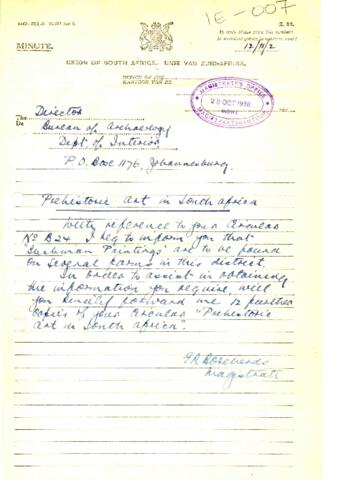 1E-007
Z. 59.
MINUTE.
12/11/2
UNION OF SOUTH AFRICA. UNIE VAN ZUID-AFRIKA.
OFFICE OF THE
KANTOOR VAN DE
MAGISTRATE'S OFFICE
28 OCT 1936
The
De
Director
Bureau of Archaeology
Dept of Interior
P.O. Box 1176, Johannesburg
Prehistoric art in South africa
With reference to your Circular
No B24 I beg to inform you that
Bushman Paintings are to be found
on several farms in this district.
In order to assist in obtaining
the information you require, will
you kindly forward me 12 further
copies of your Circular "Prehistoric
Art in South africa".
Magistrate